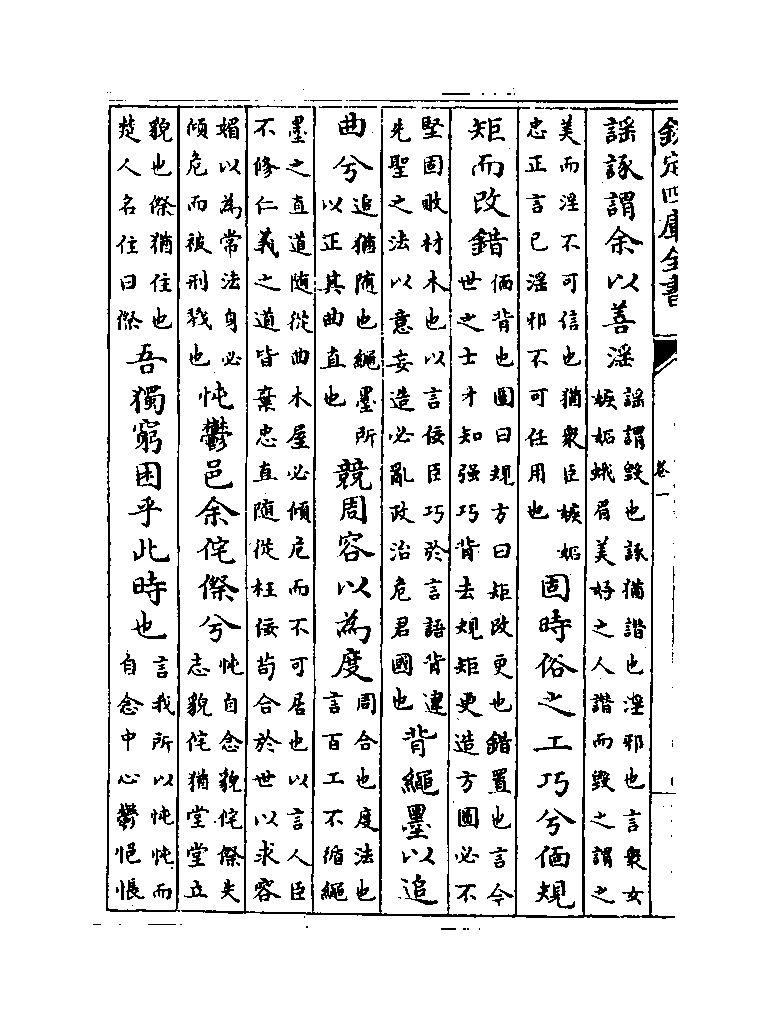 欽定四庫全書
卷一
謡諑謂余以善淫謡謂毀也諑猶譖也淫邪也言衆女嫉妬蛾眉美好之人譖而毀之謂之
美而淫不可信也猶衆臣嫉妬忠正言已淫邪不可任用也固時俗之工巧兮偭規
矩而改錯偭背也圓曰規方曰矩改更也錯置也言今世之士才知强巧背去規矩更造方圓必不
堅固敗材木也以言佞臣巧於言語背違先聖之法以意妄造必亂政治危君國也背繩墨以追
曲兮追猶随也繩墨所以正其曲直也競周容以為度周合也度法也言百工不循繩
墨之直道随從曲木屋必傾危而不可居也以言人臣不修仁義之道皆棄忠直随從枉佞苟合於世以求容
媚以為常法身必傾危而被刑戮也忳鬱邑余侘傺兮忳自念貌侘傺失志貌侘猶堂堂立
貌也傺猶住也楚人名住曰傺吾獨窮困乎此時也言我所以忳忳而自念中心鬱悒悵